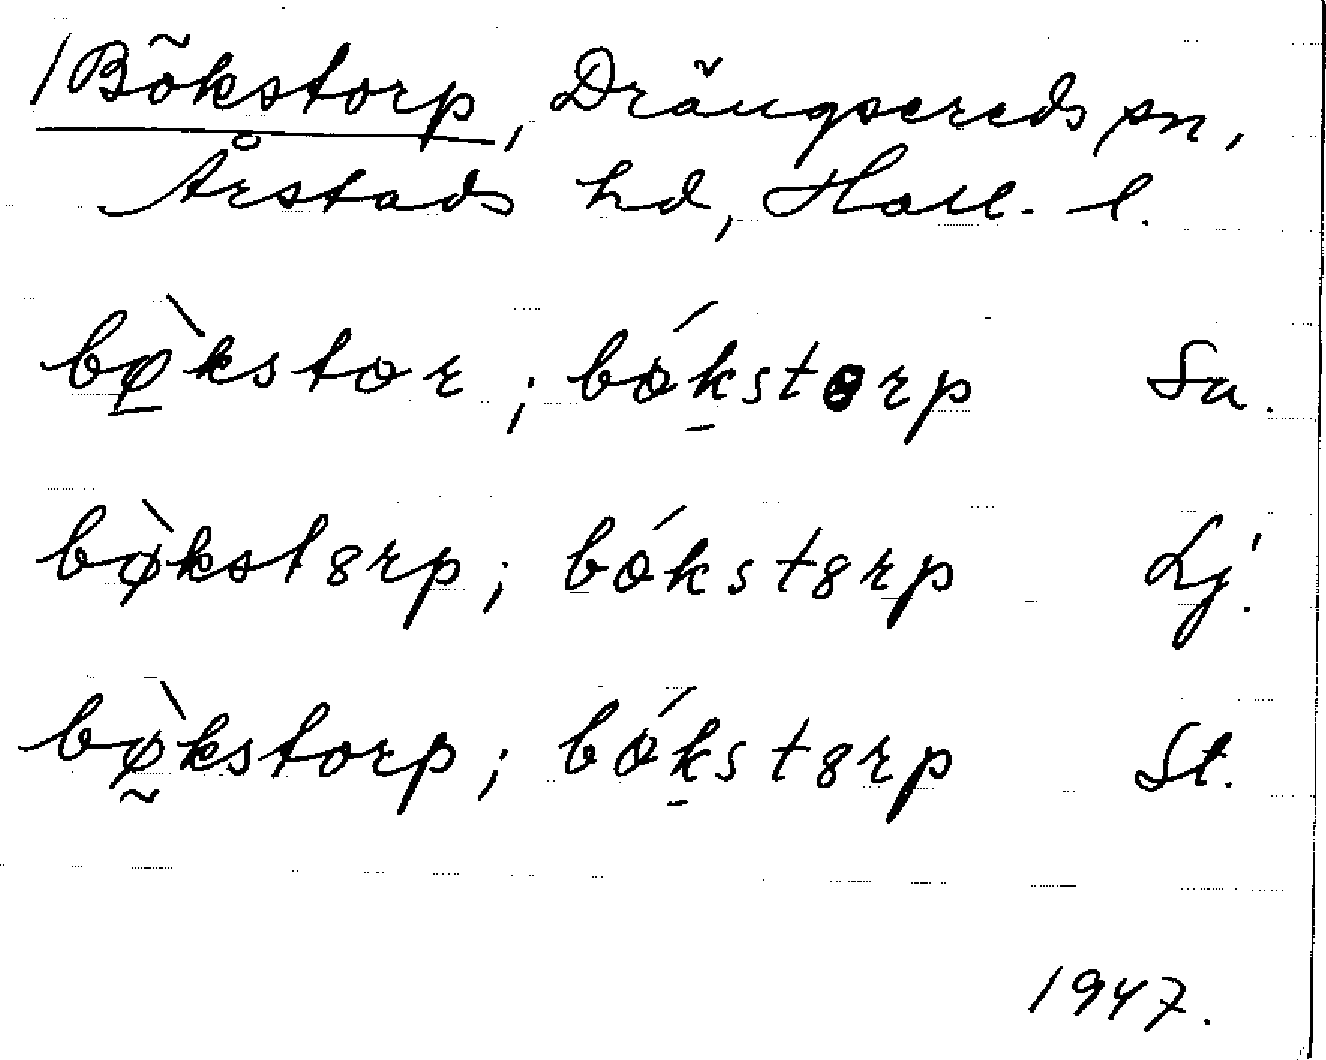 /Bökstorp, Drängsereds sn,
Årstads hd, Hall. l.
bø̀kstor ; bókstorp Sa.
bø̀kst8rp; bókst8rp Lj.
bø̀kstorp; bókst8rp St.
1947.